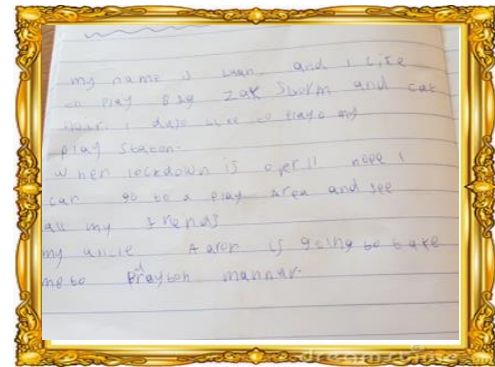 my name is and I like
to play Zak Storm and cat
I like to play my
play staton.
When lockdown is over I hope I
can go to a play area and see
all my frends
my uncle Aaron is going to take
me to Drayton mannar.
dreamstime